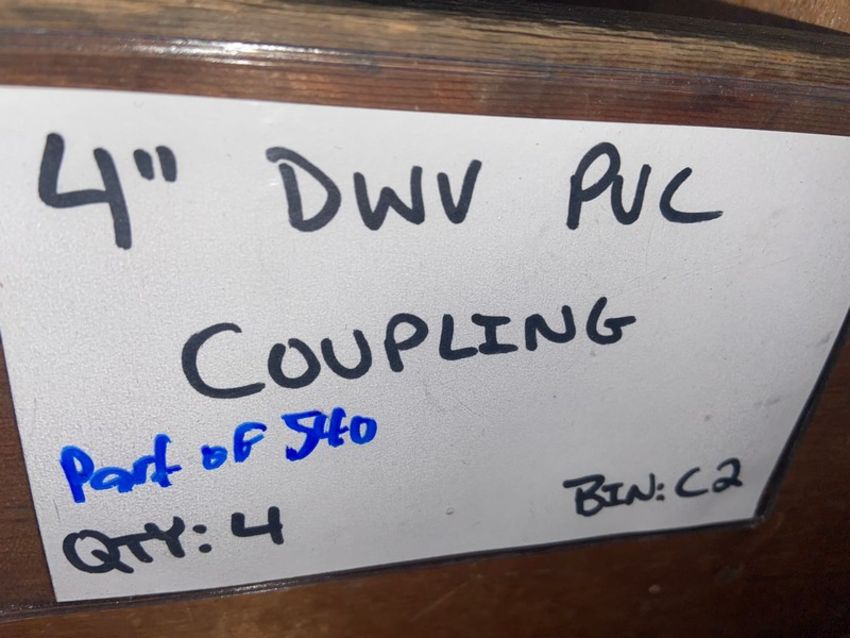 4" DWV PVC
COUPLING
Part of 540
QTY: 4
BIN: C2